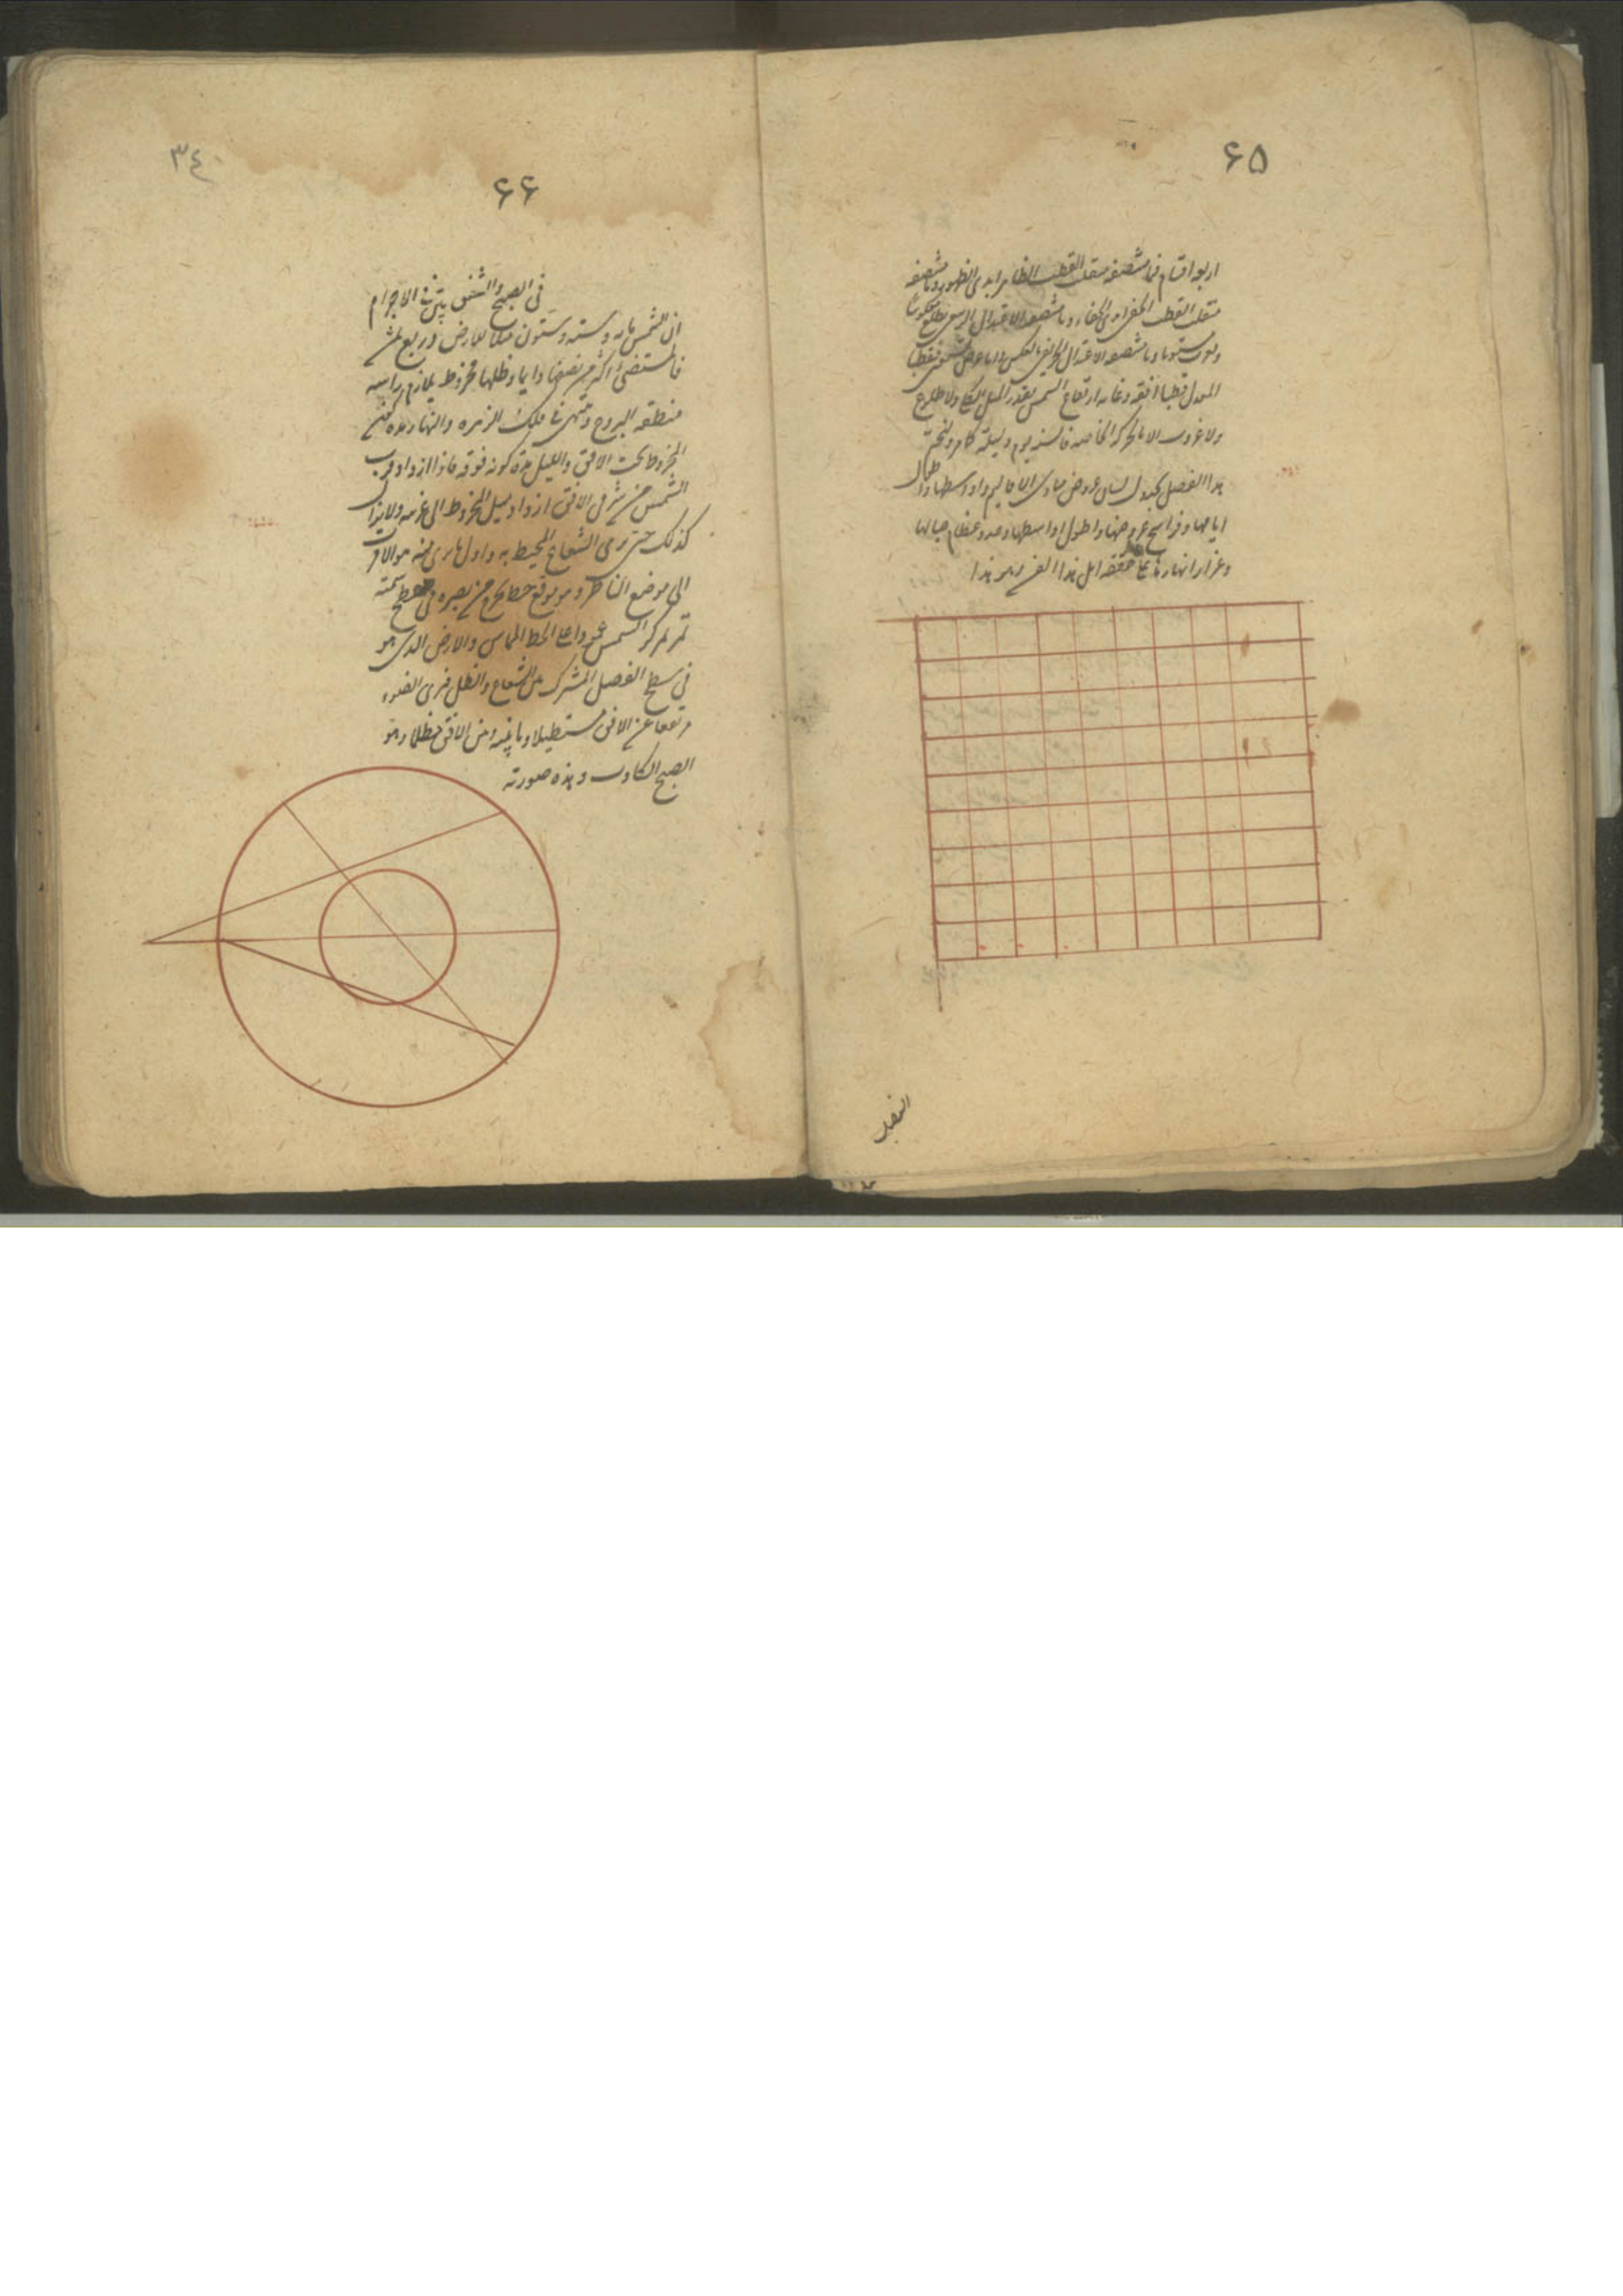 ٦٥
اربعة اقسام فما منتصفه منقلب القطب الظاهر ابدى الظهور وما منتصفه
منقلب القطب الخفى ابدى الخفاء وما منتصفه الاعتدال الربيعى يطلع معكوسا
ويغرب مستويا وما منتصفه الاعتدال الخريفى بالعكس واما عرض تسعين فقطبا
المعدل قطبا افقه وغاية ارتفاع الشمس بقدر الميل الكلى ولا طلوع
ولا غروب الا بالحركة الخاصة فالسنة يوم وليلة كما مر ولنختم
هذا الفصل بجدول لبيان عروض مبادى الاقاليم واواسطها واطوال
ايامها وفراسخ عروضها واطول اواسطها وعدد عظام جبالها
وغزار انهارها على ما حققه اهل هذا الفن وهو هذا
٣٤
٦٦
فى الصبح والشفق يتبين فى الاجرام
ان الشمس مائة وستة وستون مثلا للارض وربع ثمن
فالمستضئ اكثر من نصفها دايما وظلها مخروط يلازم راسه
منطقة البروج وينتهى فى فلك الزهرة والنهار مدة كون
المخروط تحت الافق والليل مدة كونه فوقه فاذا ازداد قرب
الشمس من شرقى الافق ازداد ميل المخروط الى غربيه ولا يزال
كذلك حتى يرى الشعاع المحيط به واول ما يرى منه هو الاقرب
الى موضع الناظر وهو موقع خط يخرج من بصره فى سطح سمتية
تمر بمركز الشمس عمودا على الخط المماس والارض الذى هو
فى سطح الفصل المشترك بين الشعاع والظل فيرى الضوء
مرتفعا عن الافق مستطيلا وما بينه وبين الافق مظلما وهو
الصبح الكاذب وهذه صورته